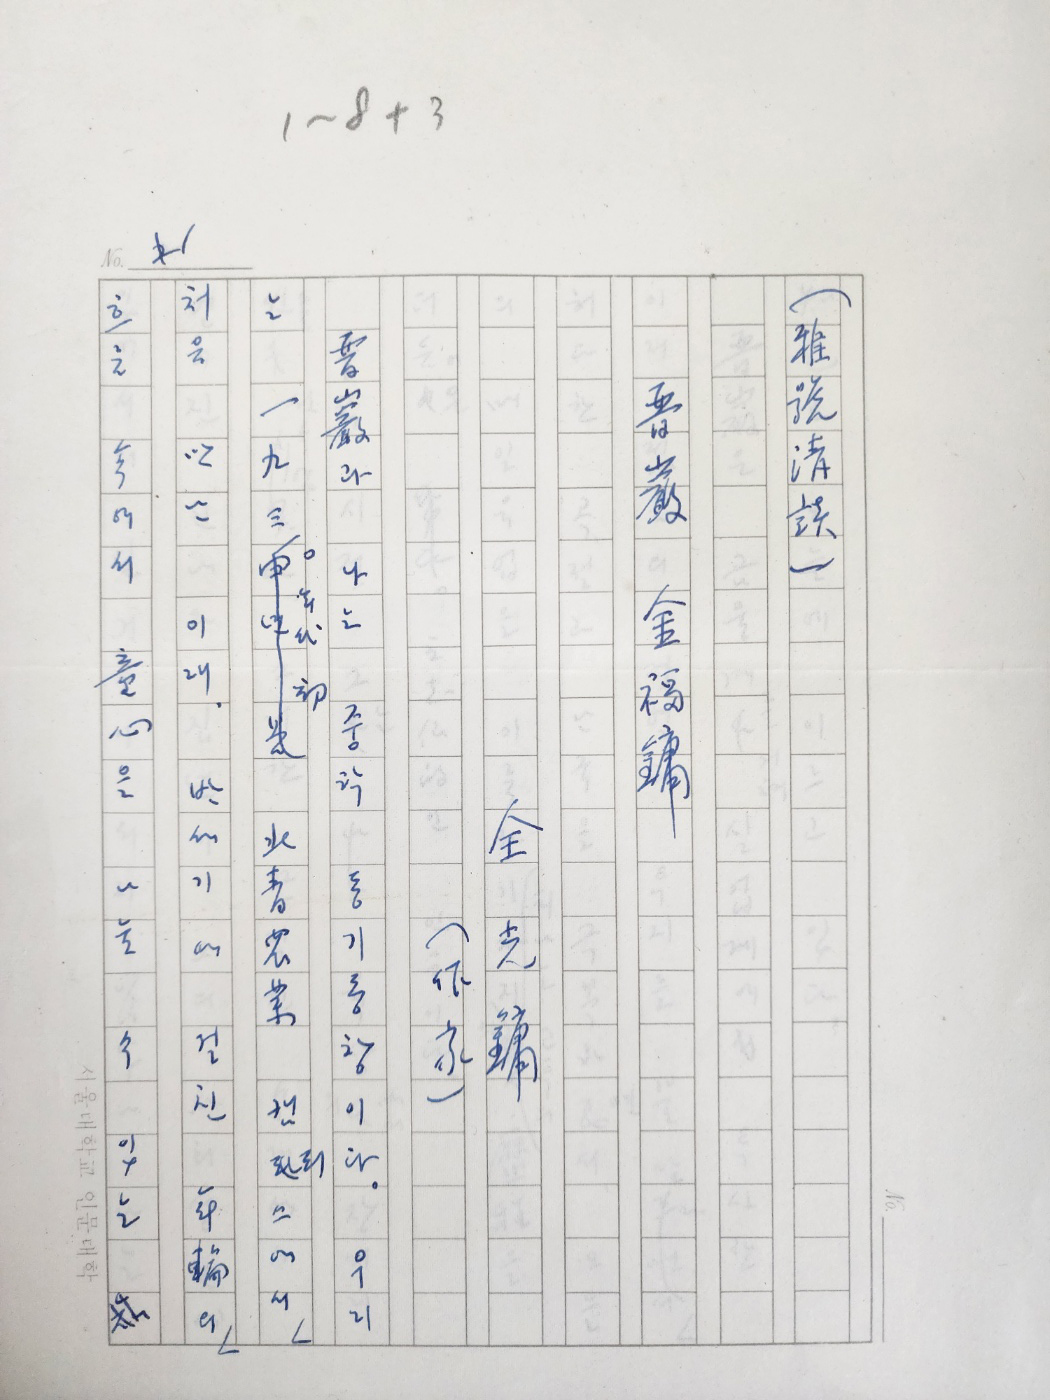 1~8+3
No. 1
(雅號清談)
晋巖 金福鏞
全光鏞
(作家)
晋巖과 나는 중학 동기동창이다. 우리
는 一九三〇年代初 北青農業 캠퍼스에서
처음 만난 이래, 반세기에 걸친 年輪의
흐름 속에서 童心을 나눌 수 있는
서울대학교 인문대학
No.